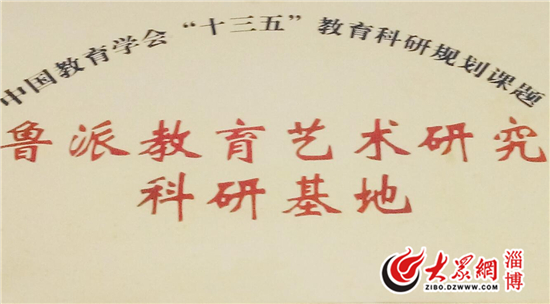 中国教育学会“十三五”教育科研规划课题
鲁派教育艺术研究
科研基地
大众網 淄博
ZIBO.DZWWW.COM